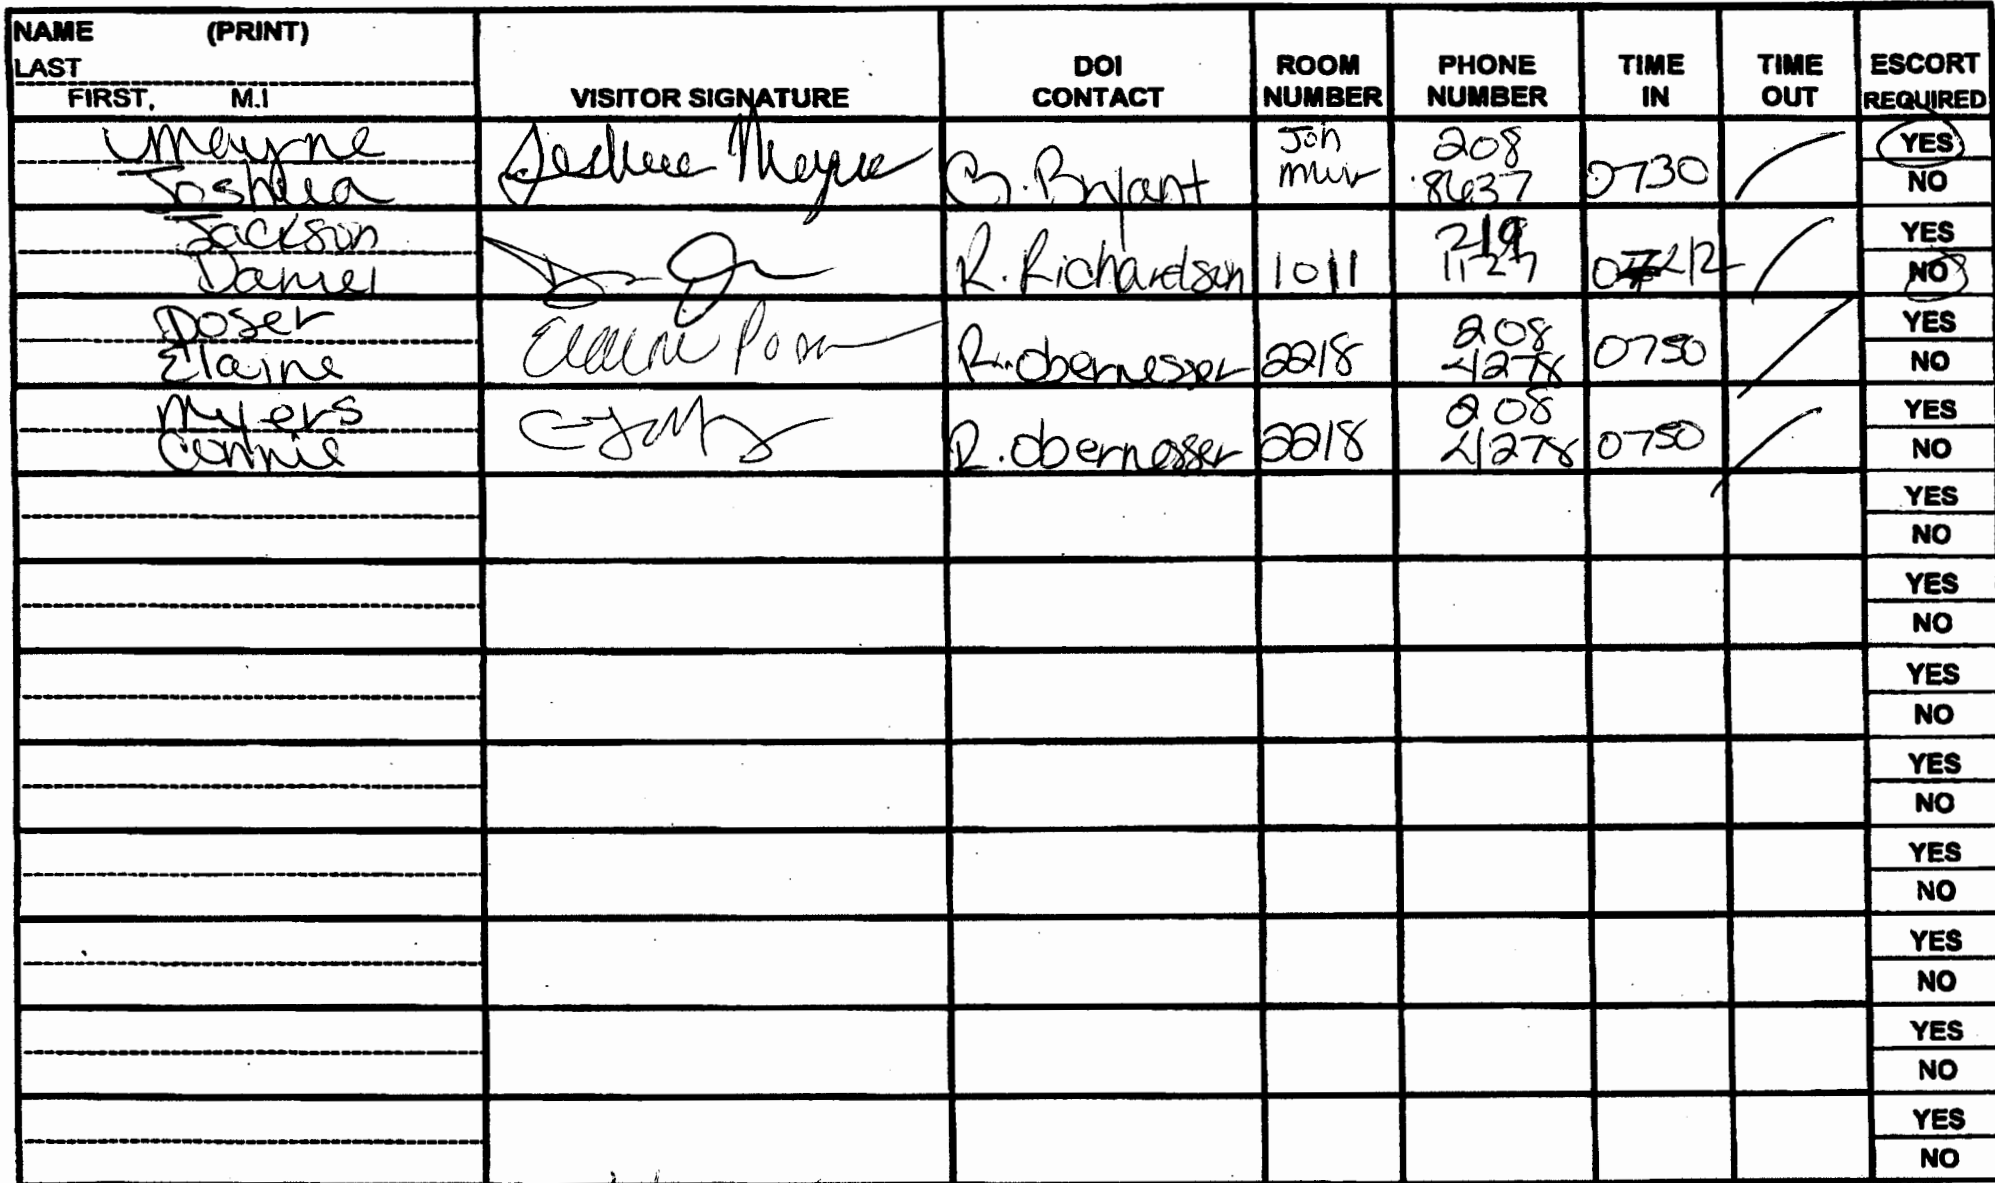 NAME (PRINT)
LAST
FIRST, M.I
VISITOR SIGNATURE
DOI CONTACT
ROOM NUMBER
PHONE NUMBER
TIME IN
TIME OUT
ESCORT REQUIRED
Mayne
Joshua
Joshua Mayne
B. Bryant
Joh
muir
208
8637
0730
YES
NO
Jackson
Daniel
R. Richardson
1011
219
1127
YES
NO
Poser
Elaine
Elaine Poser
R. Obernesser
2218
208
4278
0750
YES
NO
Myers
Connie
R. Obernesser
2218
208
4278
0750
YES
NO
YES
NO
YES
NO
YES
NO
YES
NO
YES
NO
YES
NO
YES
NO
YES
NO